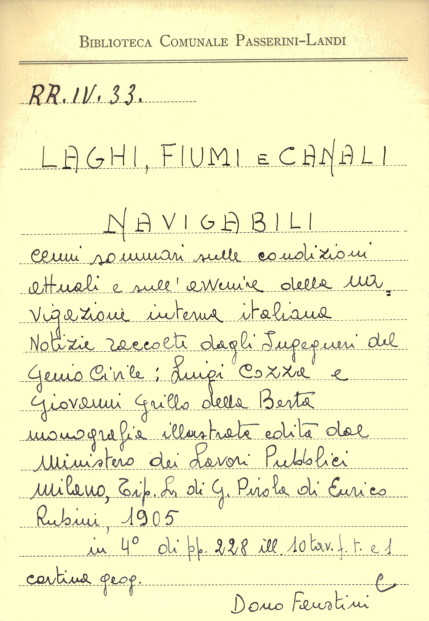 BIBLIOTECA COMUNALE PASSERINI-LANDI
RR. IV. 33.
LAGHI, FIUMI E CANALI
NAVIGABILI
cenni sommari sulle condizioni
attuali e sull'avvenire della na=
vigazione interna italiana
Notizie raccolte dagli Ingegneri del
Genio Civile: Luigi Cozza e
Giovanni Grillo della Berta
monografia illustrata edita dal
Ministero dei Lavori Pubblici
Milano, Tip. Lit. di G. Pirola di Enrico
Rubini, 1905
in 4° di pp. 228 ill. 10 tav. f. t. e 1
cartina geog.
Dono Faustini